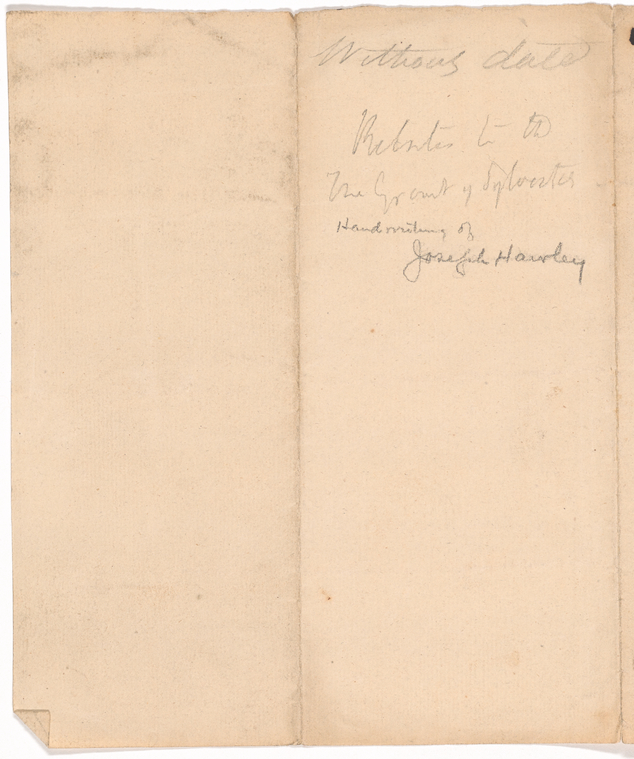 Without date
Relates to th
The Grant of Sylvester
Handwriting of
Joseph Hawley